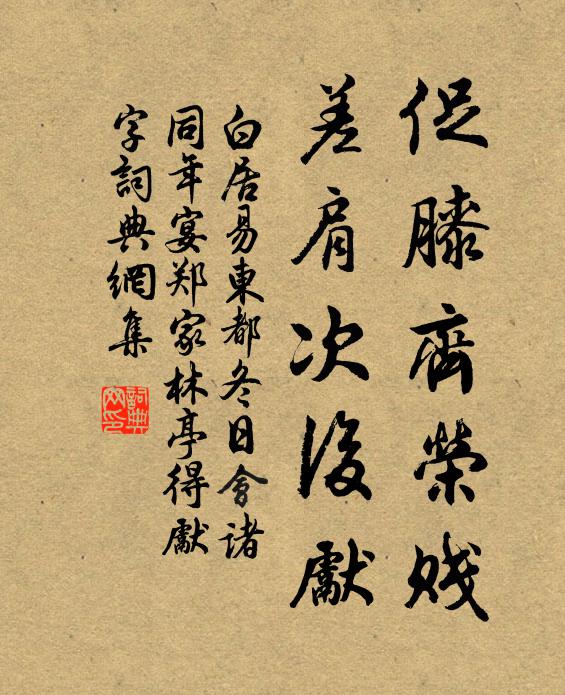 促膝齊榮賤
差肩次後獻
白居易東都冬日會諸
同年宴郑家林亭得獻
字詞典網集
詞典网印